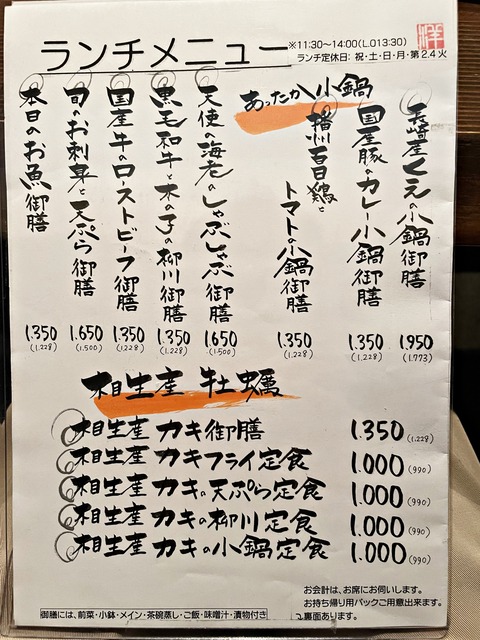 ランチメニュー
※11:30~14:00(L.O13:30)
ランチ定休日: 祝・土・日・月・第2.4火
洋
あったか小鍋
長崎産くえの小鍋御膳 1.950 (1.773)
国産豚のカレー小鍋御膳 1.350 (1.228)
播州百日鶏と
トマトの小鍋御膳 1.350 (1.228)
天使の海老のしゃぶしゃぶ御膳 1.650 (1.500)
黒毛和牛と木の子の柳川御膳 1.350 (1.228)
国産牛のローストビーフ御膳 1.350 (1228)
旬のお刺身と天ぷら御膳 1.650 (1.500)
本日のお魚御膳 1.350 (1.228)
相生産 牡蠣
相生産 カキ御膳 1.350 (1.228)
相生産 カキフライ定食 1.000 (990)
相生産 カキの天ぷら定食 1.000 (990)
相生産 カキの柳川定食 1.000 (990)
相生産 カキの小鍋定食 1.000 (990)
お会計は、お席にお伺いします。
お持ち帰り用パックご用意出来ます。
裏面あります。
御膳には、前菜・小鉢・メイン・茶碗蒸し・ご飯・味噌汁・漬物付き